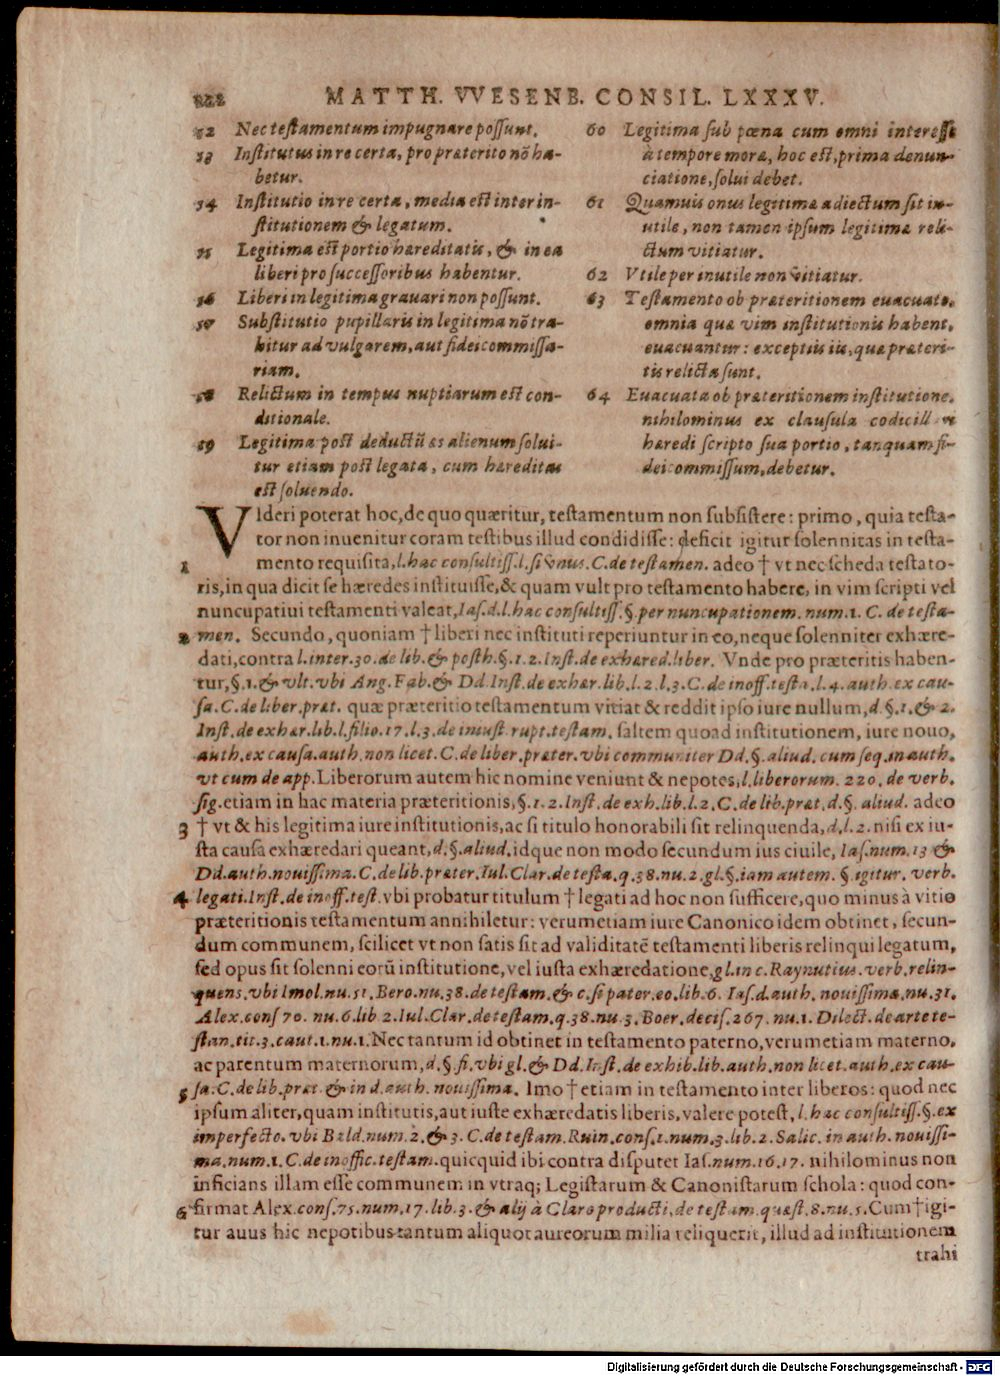 222 MATTH. VVESENB. CONSIL. LXXXV.
52 Nec testamentum impugnare possunt.
53 Institutus in re certa, pro præterito nō ha-
betur.
54 Institutio in re certa, media est inter in-
stitutionem & legatum.
55 Legitima est portio hæreditatis, & in ea
liberi pro successoribus habentur.
56 Liberi in legitima grauari non possunt.
57 Substitutio pupillaris in legitima nō tra-
hitur ad vulgarem, aut fideicommissa-
riam.
58 Relictum in tempus nuptiarum est con-
ditionale.
59 Legitima post deductū æs alienum solui-
tur etiam post legata, cum hæreditas
est soluendo.
60 Legitima sub pœna cum omni interesse
à tempore moræ, hoc est, prima denun-
ciatione, solui debet.
61 Quamuis onus legitimæ adiectum sit in-
utile, non tamen ipsum legitimæ reli-
ctum vitiatur.
62 Vtile per inutile non vitiatur.
63 Testamento ob præteritionem euacuato,
omnia quæ vim institutionis habent,
euacuantur: exceptis iis, quæ præteri-
tis relicta sunt.
64 Euacuata ob præteritionem institutione,
nihilominus ex clausula codicill
hæredi scripto sua portio, tanquam fi-
deicommissum, debetur.
VIderi poterat hoc, de quo quæritur, testamentum non subsistere: primo, quia testa-
tor non inuenitur coram testibus illud condidisse: deficit igitur solennitas in testa-
1 mento requisita, l. hac consultiss. l. si vnus. C. de testamen. adeo † vt nec scheda testato-
ris, in qua dicit se hæredes instituisse, & quam vult pro testamento habere, in vim scripti vel
nuncupatiui testamenti valeat, Ias. d. l. hac consultiss. §. per nuncupationem. num. 1. C. de testa-
2 men. Secundo, quoniam † liberi nec instituti reperiuntur in eo, neque solenniter exhære-
dati, contra l. inter. 30. de lib. & posth. §. 1. 2. Inst. de exhæred. liber. Vnde pro præteritis haben-
tur, §. 1. & vlt. vbi Ang. Fab. & Dd. Inst. de exhær. lib. l. 2. l. 3. C. de inoff. testa. l. 4. auth. ex cau-
sa. C. de liber. præt. quæ præteritio testamentum vitiat & reddit ipso iure nullum, d. §. 1. & 2.
Inst. de exhær. lib. l. filio. 17. l. 3. de iniust. rupt. testam. saltem quoad institutionem, iure nouo,
auth. ex causa. auth. non licet. C. de liber. præter. vbi communiter Dd. §. aliud. cum seq. in auth.
vt cum de app. Liberorum autem hic nomine veniunt & nepotes, l. liberorum. 220. de verb.
sig. etiam in hac materia præteritionis, §. 1. 2. Inst. de exh. lib. l. 2. C. de lib. præt. d. §. aliud. adeo
3 † vt & his legitima iure institutionis, ac si titulo honorabili sit relinquenda, d. l. 2. nisi ex iu-
sta causa exhæredari queant, d. §. aliud. idque non modo secundum ius ciuile, Ias. num. 13 &
Dd. auth. nouissima. C. de lib. præter. Iul. Clar. de testa. q. 38. nu. 2. gl. §. iam autem. §. igitur. verb.
4 legati. Inst. de inoff. test. vbi probatur titulum † legati ad hoc non sufficere, quo minus à vitio
præteritionis testamentum annihiletur: verumetiam iure Canonico idem obtinet, secun-
dum communem, scilicet vt non satis sit ad validitatē testamenti liberis relinqui legatum,
sed opus sit solenni eorū institutione, vel iusta exhæredatione, gl. in c. Raynutius. verb. relin-
quens. vbi Imol. nu. 51. Bero. nu. 38. de testam. & c. si pater. eo. lib. 6. Ias. d. auth. nouissima. nu. 31.
Alex. cons 70. nu. 6. lib 2. Iul. Clar. de testam. q. 38. nu. 3. Boer. decis. 267. nu. 1. Dilect. de arte te-
stan. tit. 3. caut. 1. nu. 1. Nec tantum id obtinet in testamento paterno, verumetiam materno,
ac parentum maternorum, d. §. fi. vbi gl. & Dd. Inst. de exhib. lib. auth. non licet. auth. ex cau-
5 sa. C. de lib. præt. & in d. auth. nouissima. Imo † etiam in testamento inter liberos: quod nec
ipsum aliter, quam institutis, aut iuste exhæredatis liberis, valere potest, l. hac consultiss. §. ex
imperfecto. vbi Bald. num. 2. & 3. C. de testam. Ruin. cons. 1. num. 3. lib. 2. Salic. in auth. nouissi-
ma. num. 1. C. de inoffic. testam. quicquid ibi contra disputet Ias. num. 16. 17. nihilominus non
inficians illam esse communem in vtraq; Legistarum & Canonistarum schola: quod con-
6 firmat Alex. cons. 75. num. 17. lib. 3. & alij à Claro producti, de testam. quæst. 8. nu. 5. Cum † igi-
tur auus hic nepotibus tantum aliquot aureorum milia reliquerit, illud ad institutionem
trahi
Digitalisierung gefördert durch die Deutsche Forschungsgemeinschaft - DFG